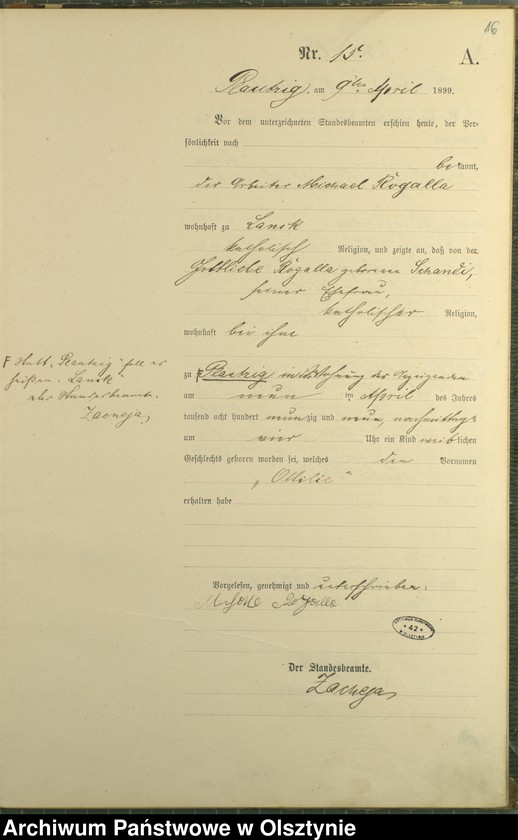 16
Nr. 15.
A.
Plautzig, am 9ten April 1899.
Vor dem unterzeichneten Standesbeamten erschien heute, der Per-
sönlichkeit nach
bekannt,
der Arbeiter Michael Rogalla
wohnhaft zu Lansk
katholisch Religion, und zeigte an, daß von der
Gottliebe Rogalla geborene
seiner Ehefrau,
katholischer Religion,
wohnhaft bei ihm
zu Plautzig in Wohnung des Anzeigenden
am neun ten April des Jahres
tausend acht hundert neunzig und neun, nachmittags
um vier Uhr ein Kind weiblichen
Geschlechts geboren worden sei, welches den Vornamen
„Ottilie“
erhalten habe
F Statt „Plautzig“ soll es
heißen „Lansk“
der Standesbeamte.
Zacheja
Vorgelesen, genehmigt und unterschrieben:
42
Der Standesbeamte.
Zacheja
Archiwum Państwowe w Olsztynie